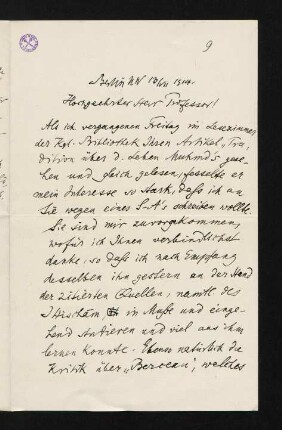 9
Berlin NW 13/IV 1914.
Hochgeehrter Herr Professor!
Als ich vergangenen Freitag im Lesezimmer
der Kgl. Bibliothek Ihren Artikel „Tra-
dition über d. Leben Muhmd's gese-
hen und gleich gelesen, fesselte er
mein Interesse so stark, daß ich an
Sie wegen eines S.A's schreiben wollte.
Sie sind mir zuvorgekommen,
wofür ich Ihnen verbindlichst
danke, so daß ich nach Empfang
desselben ihn gestern an der Hand
der zitierten Quellen, namtl. des
I Hischâm, in Muße und einge-
hend studieren und viel aus ihm
lernen konnte. Ebenso natürlich die
Kritik über , welches